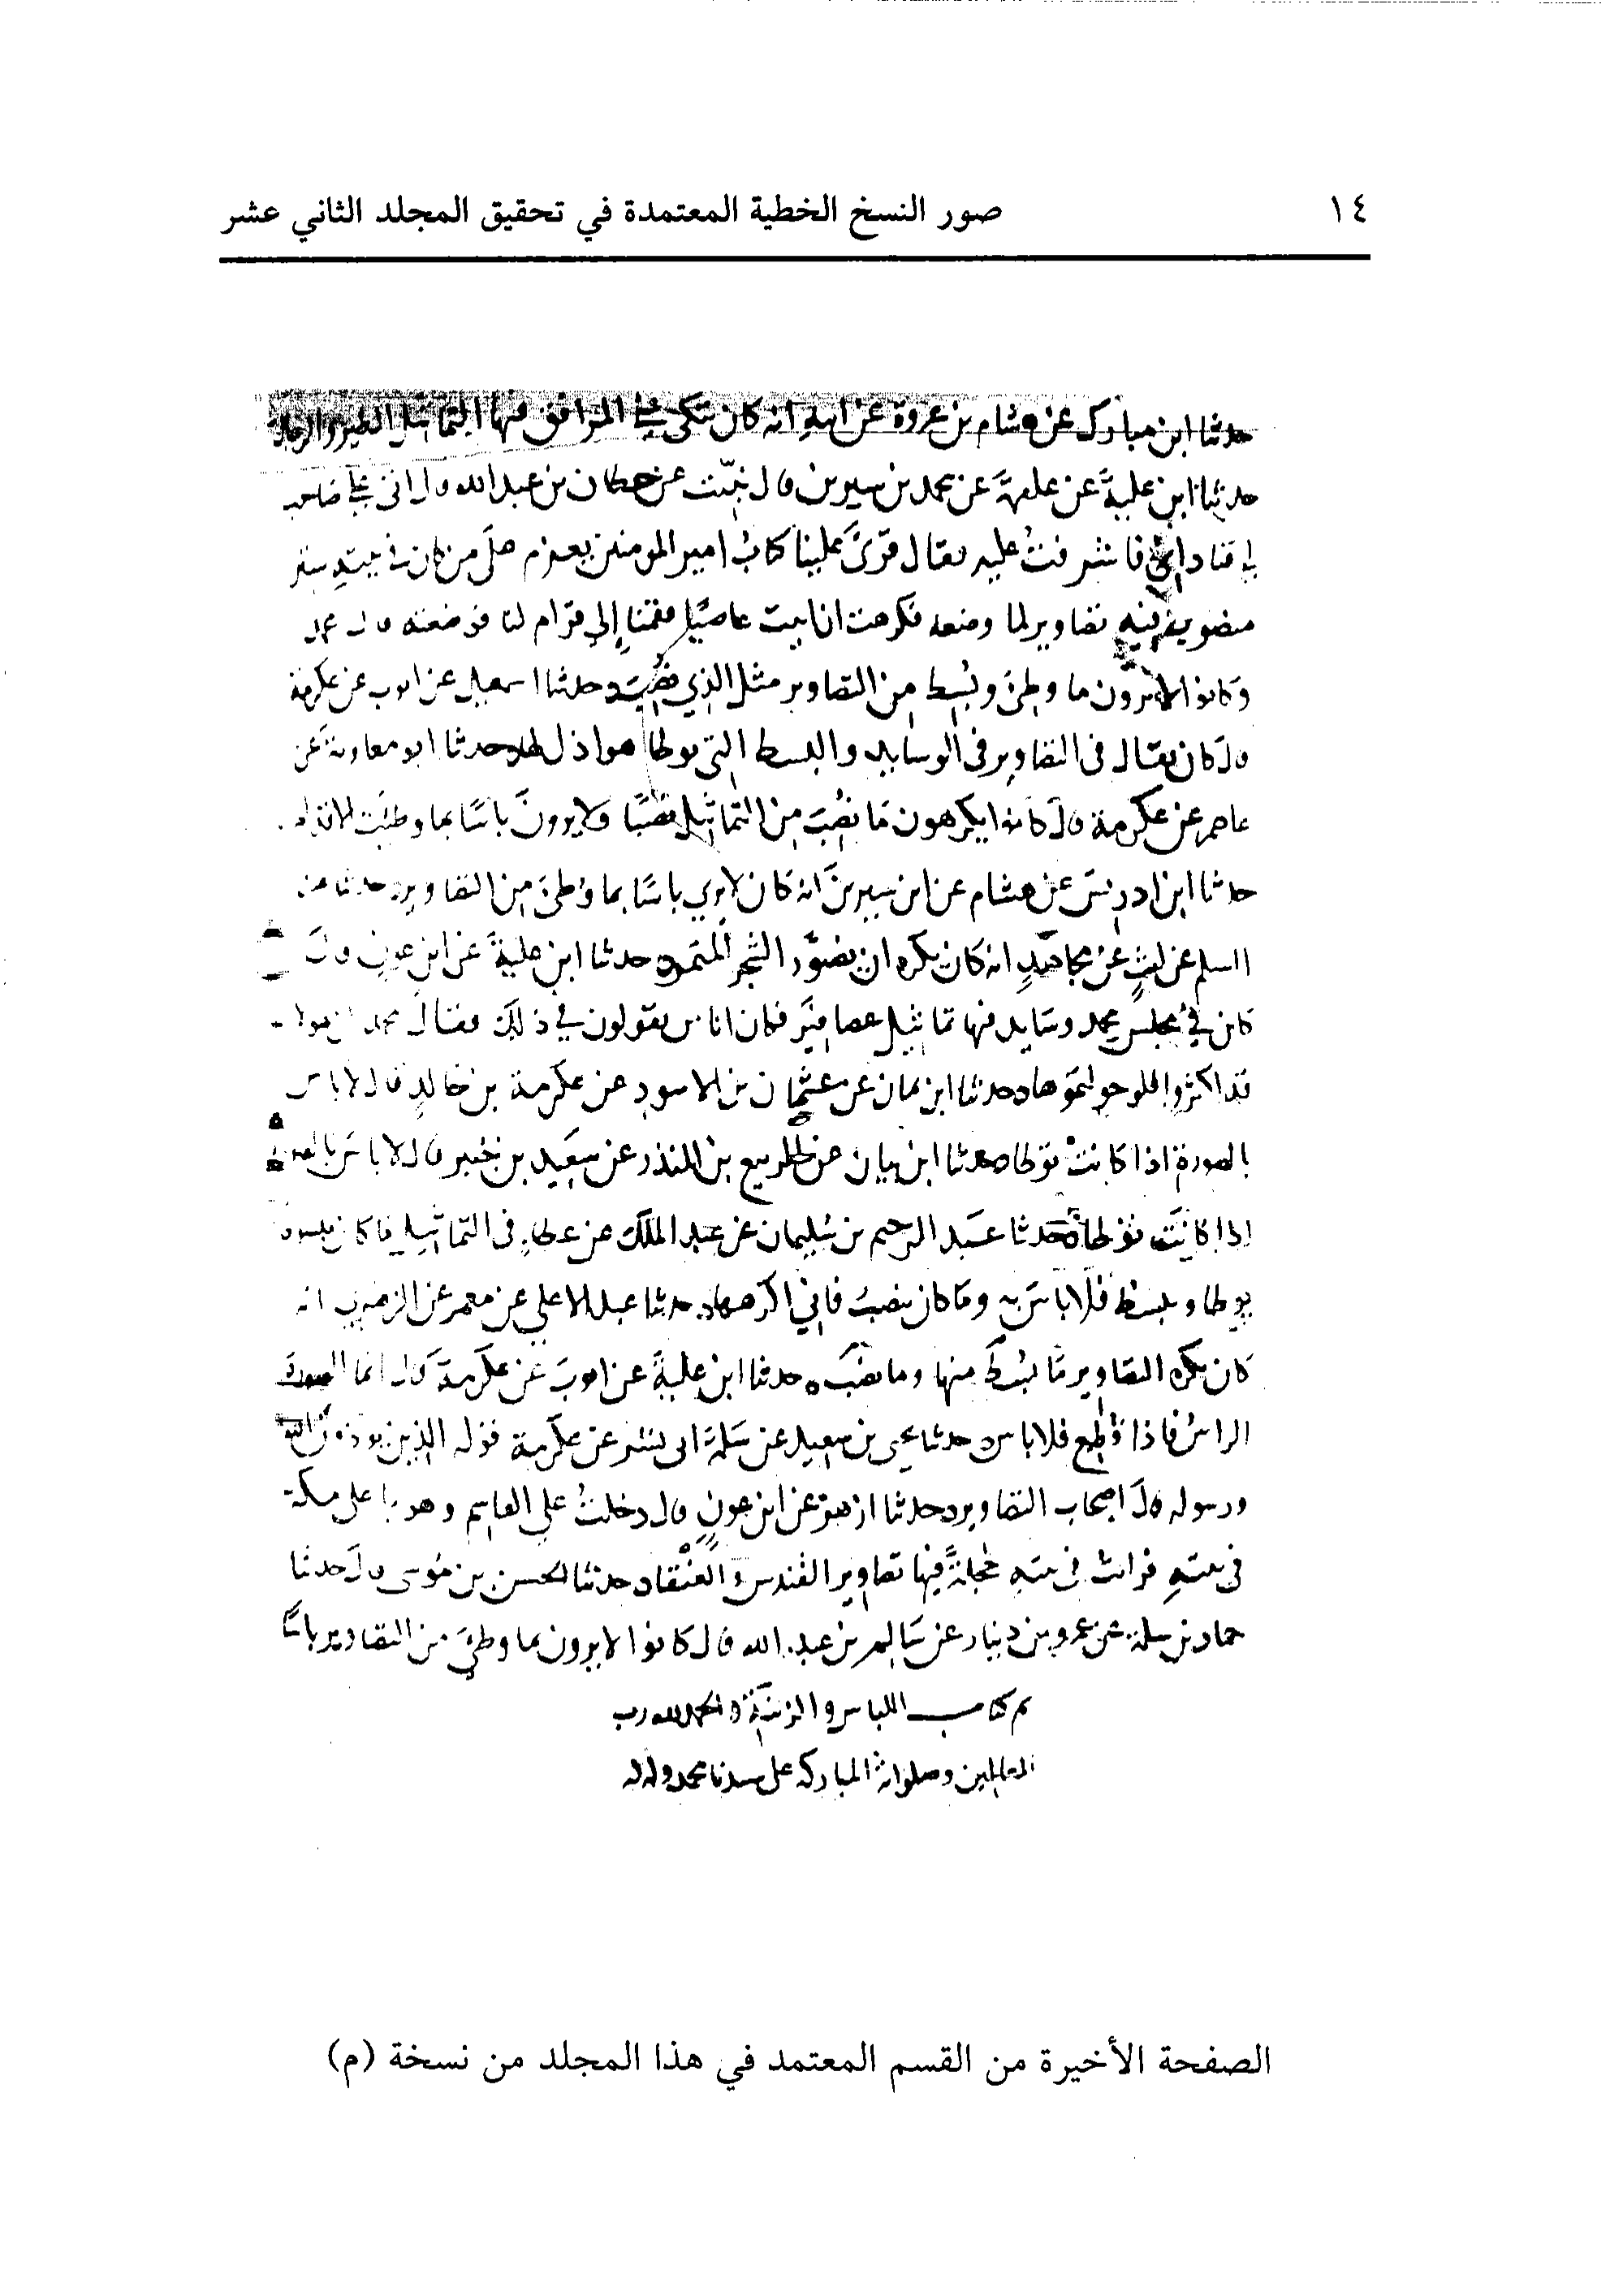 ١٤ صور النسخ الخطية المعتمدة في تحقيق المجلد الثاني عشر
حدثنا ابن مبارك عن هشام بن عروة عن ابيه انه كان يتكى على المرافق فيها التماثيل الطير والرجال
حدثنا ابن علية عن علقمة عن محمد بن سيرين قال نبئت عن حطان بن عبد الله قال اتى على صاحب
لي فناداني فاشرفت عليه فقال قرئ علينا كتاب امير المومنين يعزم على من كان في بيته ستر
منصوب فيه تصاوير لما وضعه فكرهت ان ابيت عاصيا فقمنا إلى قرام لنا فوضعته قال محمد
وكانوا لا يرون ما وطئ وبسط من التصاوير مثل الذي نصب حدثنا اسمعيل عن ايوب عن عكرمة
قال كان يقال في التصاوير في الوسايد والبسط التي توطا هو اذل لها حدثنا ابو معاوية عن
عاصم عن عكرمة قال كانوا يكرهون ما نصب من التماثيل نصبا ولا يرون باسا بما وطئت الاقدام
حدثنا ابن ادريس عن هشام عن ابن سيرين انه كان لا يرى باسا بما وطئ من التصاوير حدثنا
السلم عن ليث عن مجاهد انه كان يكره ان يصور الشجر المثمر حدثنا ابن علية عن ابن عون قال
كان في مجلس محمد وسايد فيها تماثيل عصافير فكان اناس يقولون في ذلك فقال محمد ان هولا
قد اكثروا فلو حولتموها حدثنا ابن يمان عن عثمان بن الاسود عن عكرمة بن خالد قال لا باس
بالصورة اذا كانت توطا حدثنا ابن يمان عن الربيع بن المنذر عن سعيد بن جبير قال لا باس بالصورة
اذا كانت توطا حدثنا عبد الرحيم بن سليمان عن عبد الملك عن عطاء في التماثيل ما كان مبسوطا
يوطا ويبسط فلا باس به وما كان ينصب فاني اكرهها حدثنا عبد الاعلي عن معمر عن الزهري انه
كان يكره التصاوير ما بسط منها وما نصب حدثنا ابن علية عن ايوب عن عكرمة قال انما الصورة
الراس فاذا قطع فلا باس حدثنا يحيى بن سعيد عن سلمة ابي بشر عن عكرمة قوله الذين يوذون الله
ورسوله قال اصحاب التصاوير حدثنا ازهر عن ابن عون قال دخلت علي القاسم وهو با على مكة
في بيته فرايت في بيته حجلة فيها تصاوير القندس والعنقا حدثنا الحسن بن موسى قال حدثنا
حماد بن سلمة عن عمرو بن دينار عن سالم بن عبد الله قال كانوا لا يرون بما وطئ من التصاوير باسا
تم كتاب اللباس والزينة والحمد لله رب
العالمين وصلواته المباركه على سيدنا محمد واله
الصفحة الأخيرة من القسم المعتمد في هذا المجلد من نسخة (م)